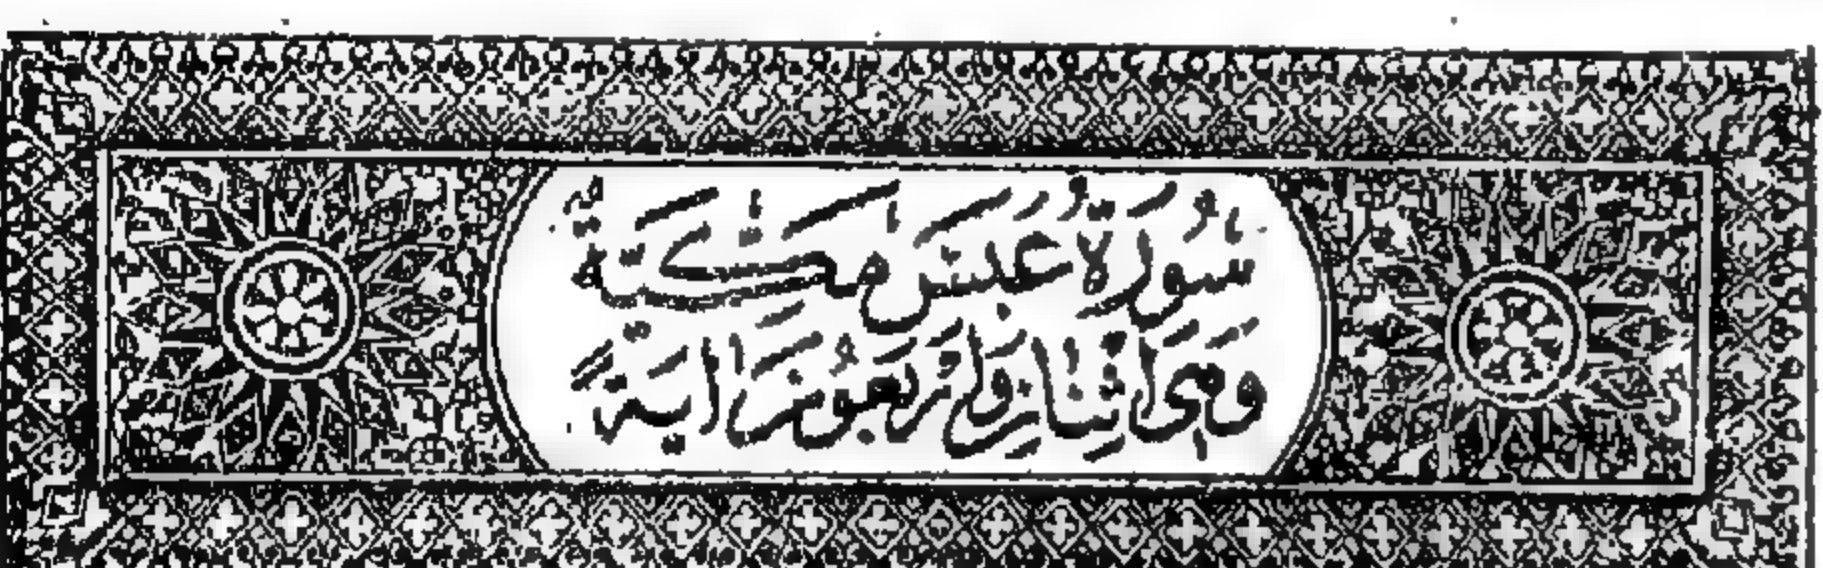 سُورَةُ عَبَسَ مَكِّيَّةٌ
وَهِيَ اثْنَانِ وَأَرْبَعُونَ آيَةً